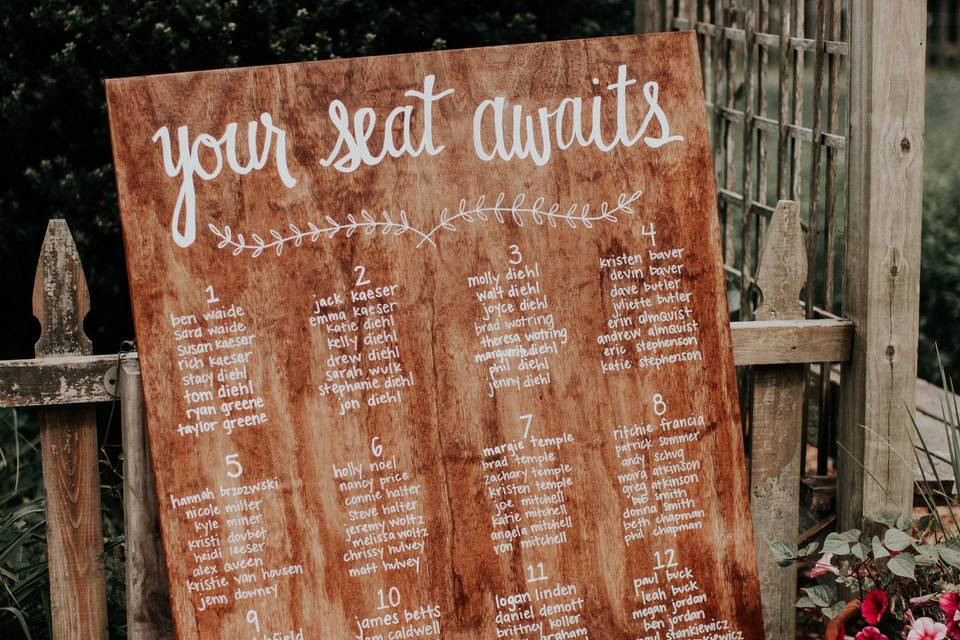 your seat awaits
1
ben waide
sara waide
susan kaeser
rich kaeser
stacy diehl
tom diehl
ryan greene
taylor greene
2
jack kaeser
emma kaeser
katie diehl
kelly diehl
drew diehl
sarah wulk
stephanie diehl
jon diehl
3
molly diehl
walt diehl
joyce diehl
brad wotring
theresa wotring
marguerite diehl
phil diehl
jenny diehl
4
kristen baver
devin baver
dave butler
juliette butler
erin almquist
andrew almquist
eric stephenson
katie stephenson
5
hannah brzozwski
nicole miller
kyle miner
kristi doubet
heidi leeser
alex aveen
kristie van housen
jenn downey
6
holly noel
nancy price
connie halter
steve halter
jeremy woltz
melissa woltz
chrissy hulvey
matt hulvey
7
margie temple
brad temple
zachary temple
kristen temple
joe mitchell
katie mitchell
angela mitchell
ron mitchell
8
ritchie francia
patrick sommer
andy schug
moira atkinson
greg atkinson
bob smith
donna smith
beth chapman
phil chapman
9
10
james betts
caldwell
11
logan linden
daniel demott
brittney koller
12
paul buck
leah buck
megan jordan
ben jordan
stankiewicz